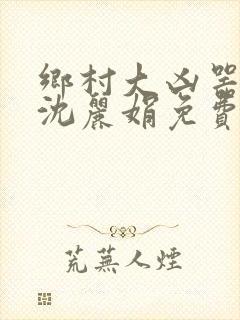 鄉村大凶器
沈麗娟免費
荒蕪人煙